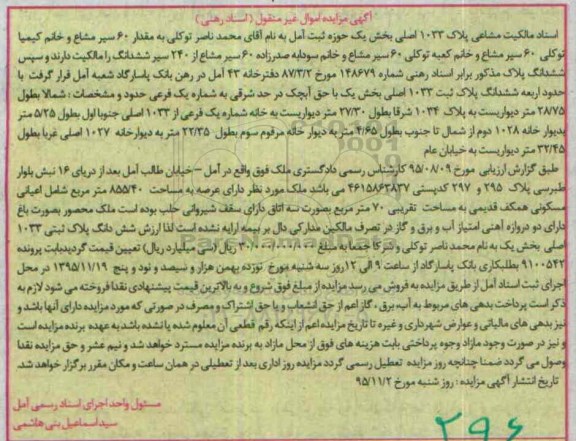 آگهی مزایده اموال غیر منقول (اسناد رهنی)
اسناد مالکیت مشاعی پلاک ۱۰۳۳ اصلی بخش یک حوزه ثبت آمل به نام آقای محمد ناصر توکلی به مقدار ۶۰ سیر مشاع و خانم کیمیا
توکلی ۶۰ سیر مشاع و خانم کعبه توکلی ۶۰ سیر مشاع و خانم سودابه صدرزاده ۶۰ سیر مشاع از ۲۴۰ سیر ششدانگ را مالکیت دارند و سپس
ششدانگ پلاک مذکور برابر اسناد رهنی شماره ۱۴۸۶۷۹ مورخ ۸۷/۳/۲ دفترخانه ۴۳ آمل در رهن بانک پاسارگاد شعبه آمل قرار گرفت با
حدود اربعه ششدانگ پلاک ثبت ۱۰۳۳ اصلی بخش یک با حق آبچک در حد شرقی به شماره یک فرعی حدود و مشخصات: شمالا بطول
۲۸/۷۵ متر دیواریست به پلاک ۱۰۳۴ شرقا بطول ۲۷/۳۰ متر دیواریست به خانه شماره یک فرعی از ۱۰۳۳ اصلی جنوبا اول بطول ۵/۲۵ متر
بدیوار خانه ۱۰۲۸ دوم از شمال تا جنوب بطول ۴/۶۵ متر به دیوار خانه مرقوم سوم بطول ۲۲/۳۵ متر به دیوارخانه ۱۰۲۷ اصلی غربا بطول
۳۲/۴۵ متر دیواریست به خیابان عام
طبق گزارش ارزیابی مورخ ۹۵/۰۸/۰۹ کارشناس رسمی دادگستری ملک فوق واقع در آمل - خیابان طالب آمل بعد از دریای ۱۶ نبش بلوار
طبرسی پلاک ۲۹۵ و ۲۹۷ کدپستی ۴۶۱۵۸۶۳۸۳۷ می باشد ملک مورد نظر دارای عرصه به مساحت ۸۵۵/۴۰ متر مربع شامل اعیانی
مسکونی همکف قدیمی به مساحت تقریبی ۷۰ متر مربع بصورت سه اتاق دارای سقف شیروانی حلب بوده است ملک محصور بصورت باغ
دارای دو دروازه آهنی امتیاز آب و برق و گاز در تصرف مالکین مدارکی دال بر بیمه ارایه نشده است لذا ارزش شش دانگ پلاک ثبتی ۱۰۳۳
اصلی بخش یک به نام محمد ناصر توکلی و شرکا جمعا به مبلغ ۳۰/۰۰۰/۰۰۰/۰۰۰ ریال (سی میلیارد ریال) تعیین قیمت گردیدبابت پرونده
۹۱۰۰۵۴۲ بطلبکاری بانک پاسارگاد از ساعت ۹ الی ۱۲روز سه شنبه مورخ نوزده بهمن هزار و سیصد و نود و پنج ۱۳۹۵/۱۱/۱۹ در محل
اجرای ثبت اسناد آمل از طریق مزایده به فروش می رسد مزایده از مبلغ فوق شروع و به بالاترین قیمت پیشنهادی نقدا فروخته می شود لازم به
ذکر است پرداخت بدهی های مربوط به آب، برق، گاز اعم از حق انشعاب و یا حق اشتراک و مصرف در صورتی که مورد مزایده دارای آنها باشد و
نیز بدهی های مالیاتی و عوارض شهرداری و غیره تا تاریخ مزایده اعم از اینکه رقم قطعی آن معلوم شده یا نشده باشد به عهده برنده مزایده است
و نیز در صورت وجود مازاد وجوه پرداختی بابت هزینه های فوق از محل مازاد به برنده مزایده مسترد خواهد شد و نیم عشر و حق مزایده نقدا
وصول می گردد ضمنا چنانچه روز مزایده تعطیل رسمی گردد مزایده روز اداری بعد از تعطیلی در همان ساعت و مکان مقرر برگزار خواهد شد.
تاریخ انتشار آگهی مزایده: روز شنبه مورخ ۹۵/۱۱/۲
مسئول واحد اجرای اسناد رسمی آمل
سید اسماعیل بنی هاشمی
۲۹۶